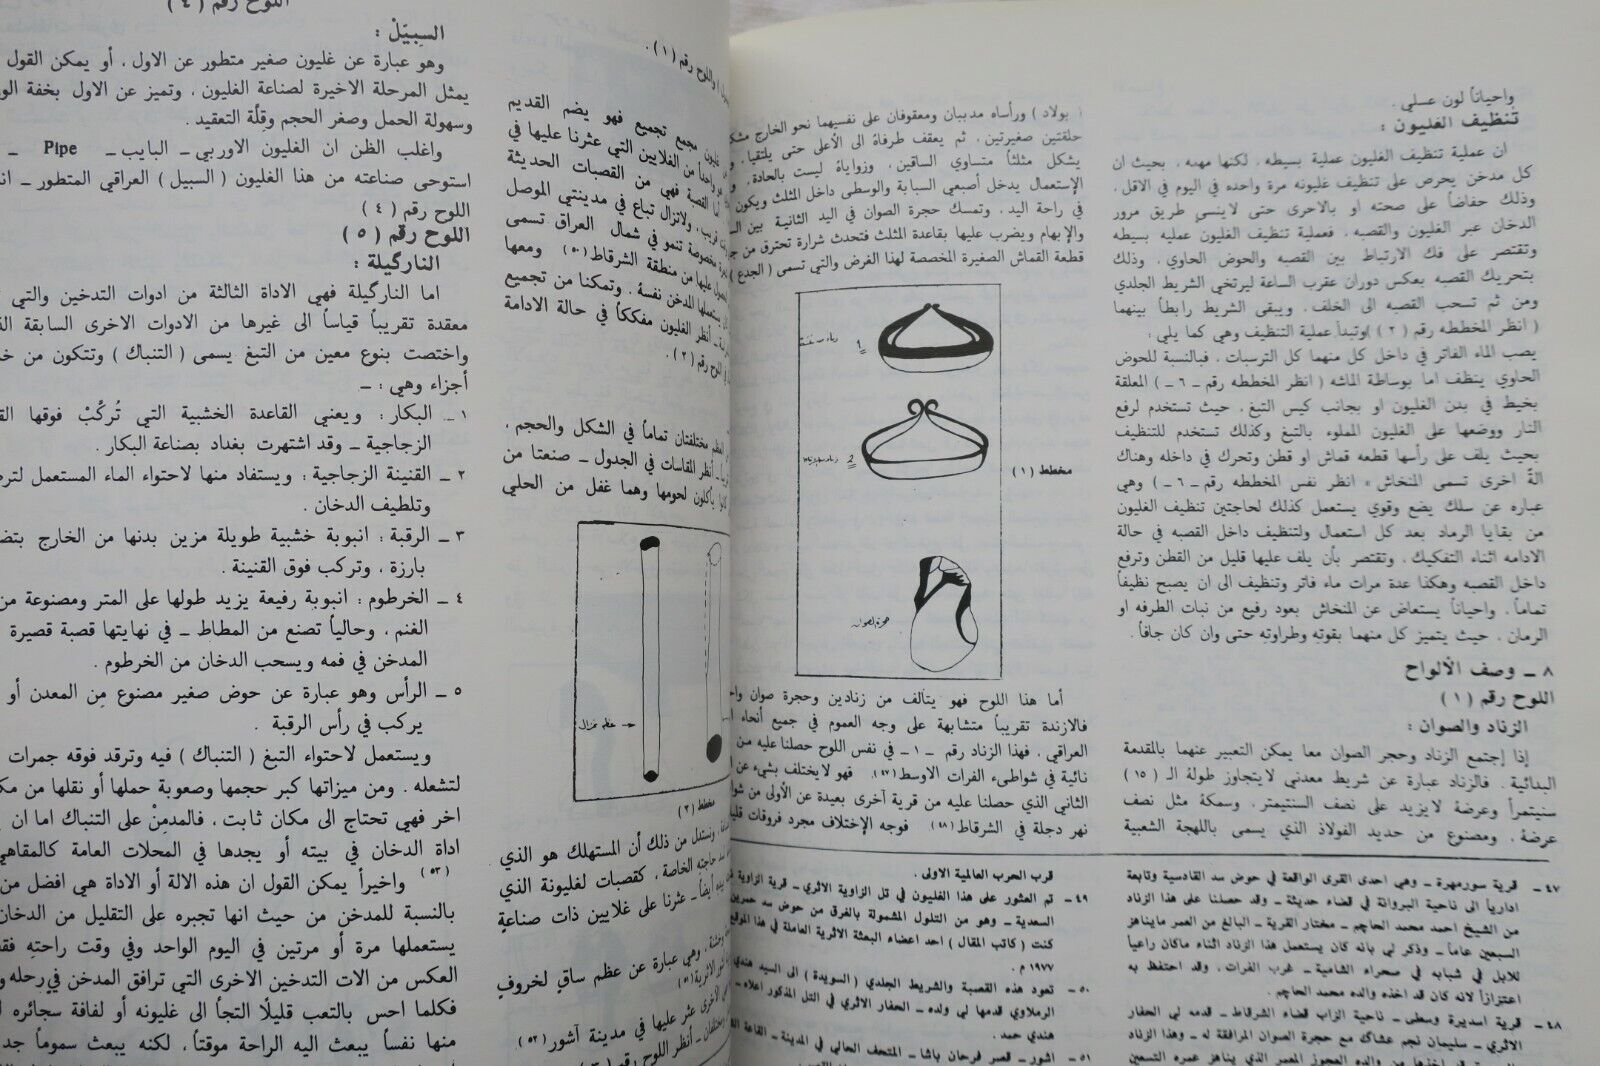 واحياناً لون عسلي .
تنظيف الغليون :
ان عملية تنظيف الغليون عملية بسيطه . لكنها مهمه . بحيث ان
كل مدخن يحرص على تنظيف غليونه مرة واحده في اليوم في الاقل .
وذلك حفاضاً على صحته او بالاحرى حتى لاينسى طريق مرور
الدخان عبر الغليون والقصبه . فعملية تنظيف الغليون عمليه بسيطه
وتقتصر على فك الارتباط بين القصبه والحوض الحاوي . وذلك
بتحريك القصبه بعكس دوران عقرب الساعة ليرتخي الشريط الجلدي
ومن ثم تسحب القصبه الى الخلف . ويبقى الشريط رابطاً بينهما
( انظر المخططه رقم ( ٢ )) وتبدأ عملية التنظيف وهي كما يلي :
يصب الماء الفاتر في داخل كل منهما كل الترسبات . فبالنسبة للحوض
الحاوي ينظف اما بوساطة الماشه ( انظر المخططه رقم ــ ٦ ــ ) المعلقة
بخيط في بدن الغليون او بجانب كيس التبغ . حيث تستخدم لرفع
النار ووضعها على الغليون المملوء بالتبغ وكذلك تستخدم للتنظيف
بحيث يلف على رأسها قطعه قماش او قطن وتحرك في داخله وهناك
الة اخرى تسمى المنخاش » انظر نفس المخططه رقم ــ ٦ ــ ) وهي
عباره عن سلك يضع وقوي يستعمل كذلك لحاجتين تنظيف الغليون
من بقايا الرماد بعد كل استعمال ولتنظيف داخل القصبه في حالة
الادامه اثناء التفكيك . وتقتصر بأن يلف عليها قليل من القطن وترفع
داخل القصبه وهكذا عدة مرات ماء فاتر وتنظيف الى ان يصبح نظيفاً
تماماً . واحياناً يستعاض عن المنخاش بعود رفيع من نبات الطرفه او
الرمان . حيث يتميز كل منهما بقوته وطراوته حتى وان كان جافاً .
٨ ــ وصف الألواح
اللوح رقم ( ١ )
الزناد والصوان :
إذا إجتمع الزناد وحجر الصوان معا يمكن التعبير عنهما بالمقدمة
البدائية . فالزناد عبارة عن شريط معدني لايتجاوز طولة الـ ( ١٥ )
سنيتمرأ وعرضة لايزيد على نصف السنتيمتر . وسمكة مثل نصف
عرضة . ومصنوع من حديد الفولاذ الذي يسمى باللهجة الشعبية
( بولاد ) ورأساه مدببان ومعقوفان على نفسيهما نحو الخارج
حلقتين صغيرتين . ثم يعقف طرفاة الى الأعلى حتى يلتقيا .
يشكل مثلثاً متساوي الساقين . وزواياة ليست بالحادة .
الإستعمال يدخل أصبعي السبابة والوسطى داخل المثلث ويكون
في راحة اليد . وتمسك حجرة الصوان في اليد الثانية بين
والإبهام ويضرب عليها بقاعدة المثلث فتحدث شرارة تحترق من
قطعة القماش الصغيرة المخصصة لهذا الغرض والتي تسمى ( الجدع )
1
2
مخطط ( ١ )
أما هذا اللوح فهو يتآلف من زنادين وحجرة صوان
فالازندة تقريباً متشابهة على وجه العموم في جميع أنحاء
العراقي . فهذا الزناد رقم ــ ١ ــ في نفس اللوح حصلنا عليه من
نائية في شواطىء الفرات الاوسط (٤٧) . فهو لايختلف بشيء عن
الثاني الذي حصلنا عليه من قرية أخرى بعيدة عن الأولى من
نهر دجلة في الشرقاط (٤٨) فوجه الإختلاف مجرد فروقات
٤٧ ــ قرية سورمهرة ــ وهي احدى القرى الواقعة في حوض سد القادسية وتابعة
ادارياً الى ناحية البروانة في قضاء حديثة ــ وقد حصلنا على هذا الزناد
من الشيخ احمد محمد الحاجم ــ مختار القرية ــ البالغ من العمر مايناهز
السبعين عاماً ــ وذكر لي بانه كان يستعمل هذا الزناد اثناء ماكان راعياً
للابل في شبابه في صحراء الشامية ــ غرب الفرات . وقد احتفظ به
اعتزازاً لانه كان قد اخذه والده محمد الحاجم .
٤٨ ــ قرية اسديرة وسطى ــ ناحية الزاب قضاء الشرقاط ــ قدمه لي الحفار
الاثري ــ سليمان نجم عشاك مع حجرة الصوان المرافقة له ــ وهذا الزناد
والده العجوز المعمر الذي يناهز عمره التسعين
قرب الحرب العالمية الاولى .
٤٩ ــ تم العثور على هذا الغليون في تل الزاوية الاثري ــ قرية الزاوية
السعدية ــ وهو من التلول المشمولة بالغرق من حوض سد حمرين
كنت ( كاتب المقال ) احد اعضاء البعثة الاثرية العاملة في هذا الموقع
١٩٧٧ م .
٥٠ ــ تعود هذه القصبة والشريط الجلدي ( السويدة ) الى السيه هندي
الرملاوي قدمها لي ولده ــ الحفار الاثري في التل المذكور اعلاه ــ
هندي حمد .
٥١ ــ آشور ــ قصر فرحان باشا ــ المتحف الحالي في المدينة ــ
واللوح رقم ( ١ ) .
غليون مجمع تجميع فهو يضم القديم
واحداً من الغلايين التي عثرنا عليها في
أما القصبة فهي من القصبات الحديثة
قريب . ولاتزال تباع في مدينتي الموصل
مخصوصة تنمو في شمال العراق تسمى
عليها من منطقة الشرقاط (٥٠) ومعها
يستعملها المدخن نفسة . وتمكنا من تجميع
أنظر الغليون مفككاً في حالة الادامة
اللوح رقم ( ٢ ) .
مختلفتان تماماً في الشكل والحجم .
أنظر القاسات في الجدول ــ صنعتا من
يأكلون لحومها وهما غفل من الحلي
عظم غزال
مخطط ( ٢ )
ونستدل من ذلك أن المستهلك هو الذي
حاجته الخاصة . كقصبات لغليونة الذي
أيضاً ــ عثرنا على غلايين ذات صناعةٍ
وهي عبارة عن عظم ساقٍ لخروفٍ
الأخرى عثر عليها في مدينة آشور (٥٢)
أنظر اللوح رقم ( ٣ )
اللوح رقم ( ٤ )
السِبيَلْ :
وهو عبارة عن غليون صغير متطور عن الاول . أو يمكن القول
يمثل المرحلة الاخيرة لصناعة الغليون . وتميز عن الاول بخفة
وسهولة الحمل وصغر الحجم وقِلّة التعقيد .
واغلب الظن ان الغليون الاوربي ــ البايب ــ Pipe ــ
استوحى صناعته من هذا الغليون ( السبيل ) العراقي المتطور ــ
اللوح رقم ( ٤ )
اللوح رقم ( ٥ )
النارگيلة :
اما النارگيلة فهي الاداة الثالثة من ادوات التدخين والتي
معقدة تقريباً قياساً الى غيرها من الادوات الاخرى السابقة
واختصت بنوع معين من التبغ يسمى ( التنباك ) وتتكون من
أجزاء وهي : ــ
١ ــ البكار : ويعني القاعدة الخشبية التي تُركْبْ فوقها
الزجاجية ــ وقد اشتهرت بغداد بصناعة البكار .
٢ ــ القنينة الزجاجية : ويستفاد منها لاحتواء الماء المستعمل
وتلطيف الدخان .
٣ ــ الرقبة : انبوبة خشبية طويلة مزين بدنها من الخارج
بارزة ، وتركب فوق القنينة .
٤ ــ الخرطوم : انبوبة رفيعة يزيد طولها على المتر ومصنوعة من
الغنم ، وحالياً تصنع من المطاط ــ في نهايتها قصبة قصيرة
المدخن في فمه ويسحب الدخان من الخرطوم .
٥ ــ الرأس وهو عبارة عن حوض صغير مصنوع مِن المعدن أو
يركب في رأس الرقبة .
ويستعمل لاحتواء التبغ ( التنباك ) فيه وترقد فوقه جمرات
لتشعله . ومن ميزاتها كبر حجمها وصعوبة حملها أو نقلها من
اخر فهي تحتاج الى مكان ثابت ، فالمدمِنْ على التنباك اما ان
اداة الدخان في بيته أو يجدها في المحلات العامة كالمقاهي
(٥٣) واخيرأ يمكن القول ان هذه الالة أو الاداة هي افضل من
بالنسبة للمدخن من حيث انها تجبره على التقليل من الدخان
يستعملها مرة أو مرتين في اليوم الواحد وفي وقت راحتِهِ
العكس من الات التدخين الاخرى التي ترافق المدخن في رِحله
فكلما احس بالتعب قليلًا التجأ الى غليونه أو لفافة سجائره
منها نفساً يبعث اليه الراحة موقتاً ، لكنه يبعث سموماً